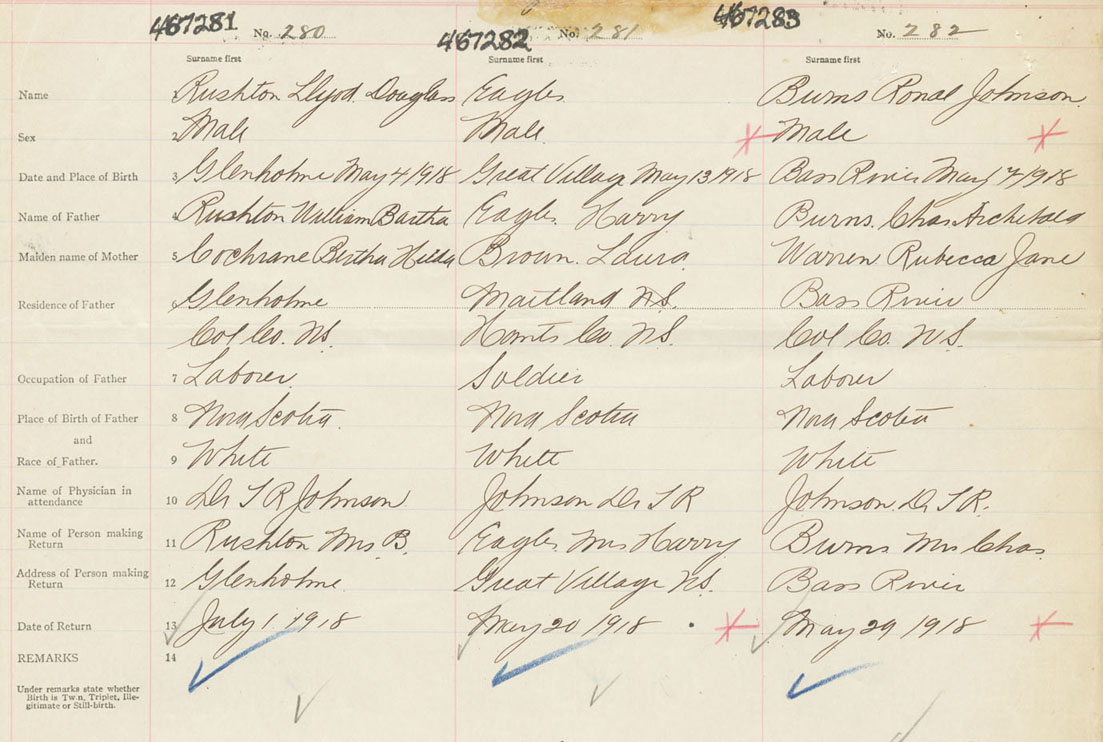 467281 No. 280 467282 No. 281 467283 No. 282
Surname first Surname first Surname first
Name 1 Rushton Llyod. Douglass Eagles Burns Ronal Johnson
Sex 2 Male Male Male
Date and Place of Birth 3 Glenholme May 4/1918 Great Village May 13 1918 Bass River May 7/1918
Name of Father 4 Rushton William Eagles. Harry Burns. Chas Archibald
Maiden name of Mother 5 Cochrane Bertha Hilda Brown. Laura. Warren Rubecca Jane
Residence of Father 6 Glenholme Maitland N.S. Bass River
Col Co. NS. Hants Co. NS. Col Co. NS.
Occupation of Father 7 Laborer. Soldier Laborer
Place of Birth of Father 8 Nova Scotia. Nova Scotia Nova Scotia
and
Race of Father. 9 White White White
Name of Physician in
attendance 10 Dr T R Johnson Johnson Dr T R Johnson. Dr T R.
Name of Person making
Return 11 Rushton Mrs. B. Eagles Mrs Harry Burns Mrs Chas.
Address of Person making
Return 12 Glenholme. Great Village NS. Bass River
Date of Return 13 July 1, 1918 May 20 1918 May 29 1918
REMARKS 14
Under remarks state whether
Birth is Twin, Triplet, Ille-
gitimate or Still-birth.